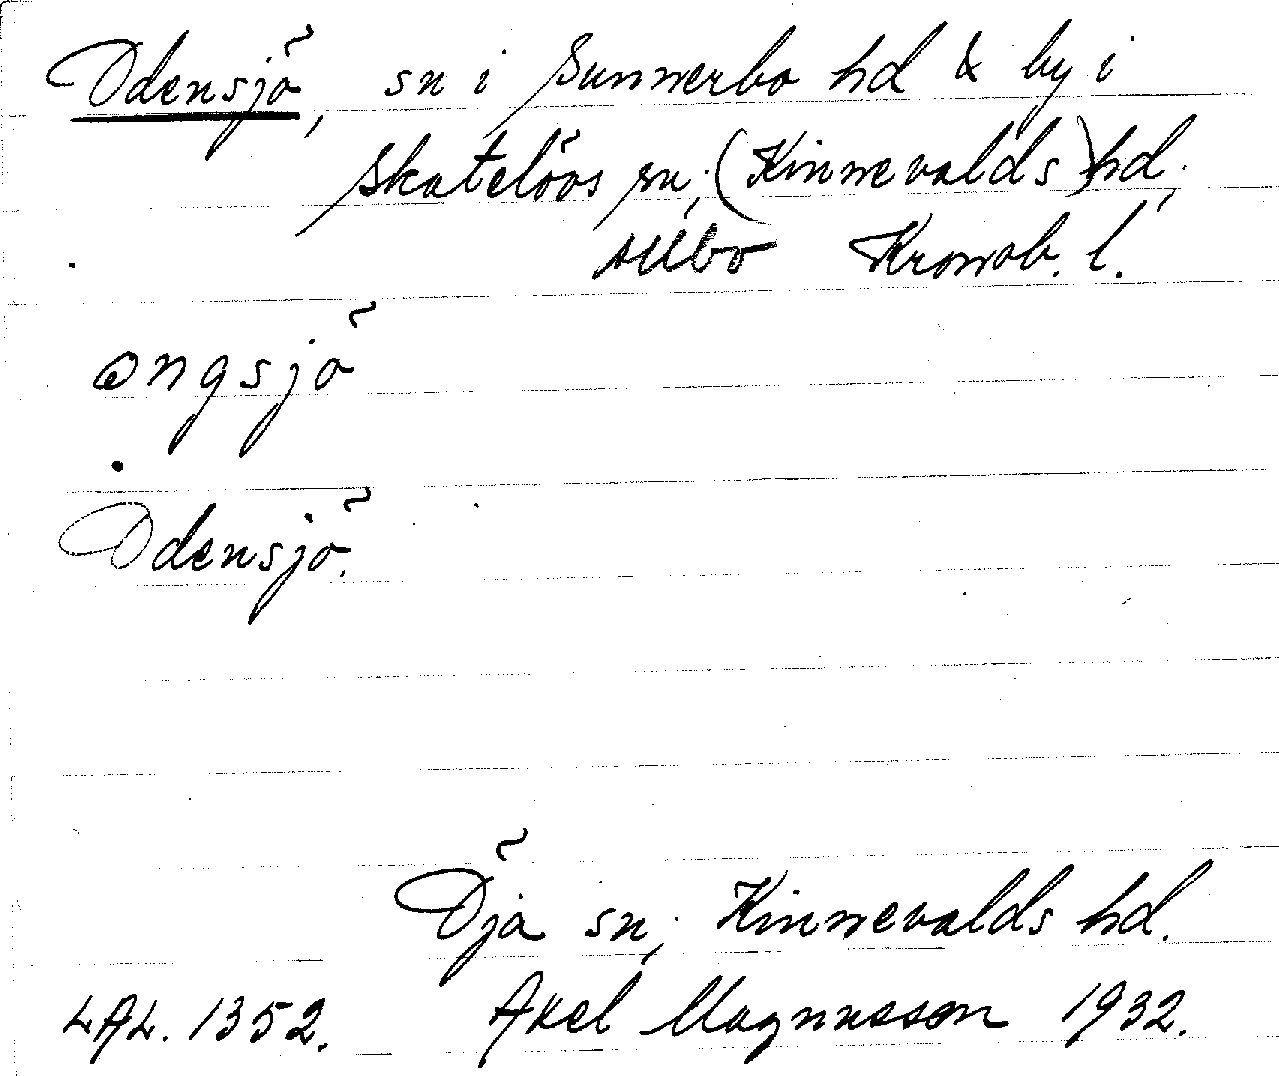 Odensjö, sn i Sunnerbo hd & by i
Skatelövs sn, (Kinnevalds) hd,
Allbo Kronob. l.
ongsjö
Odensjö.
Öja sn, Kinnevalds hd.
LAL. 1352. Axel Magnusson 1932.